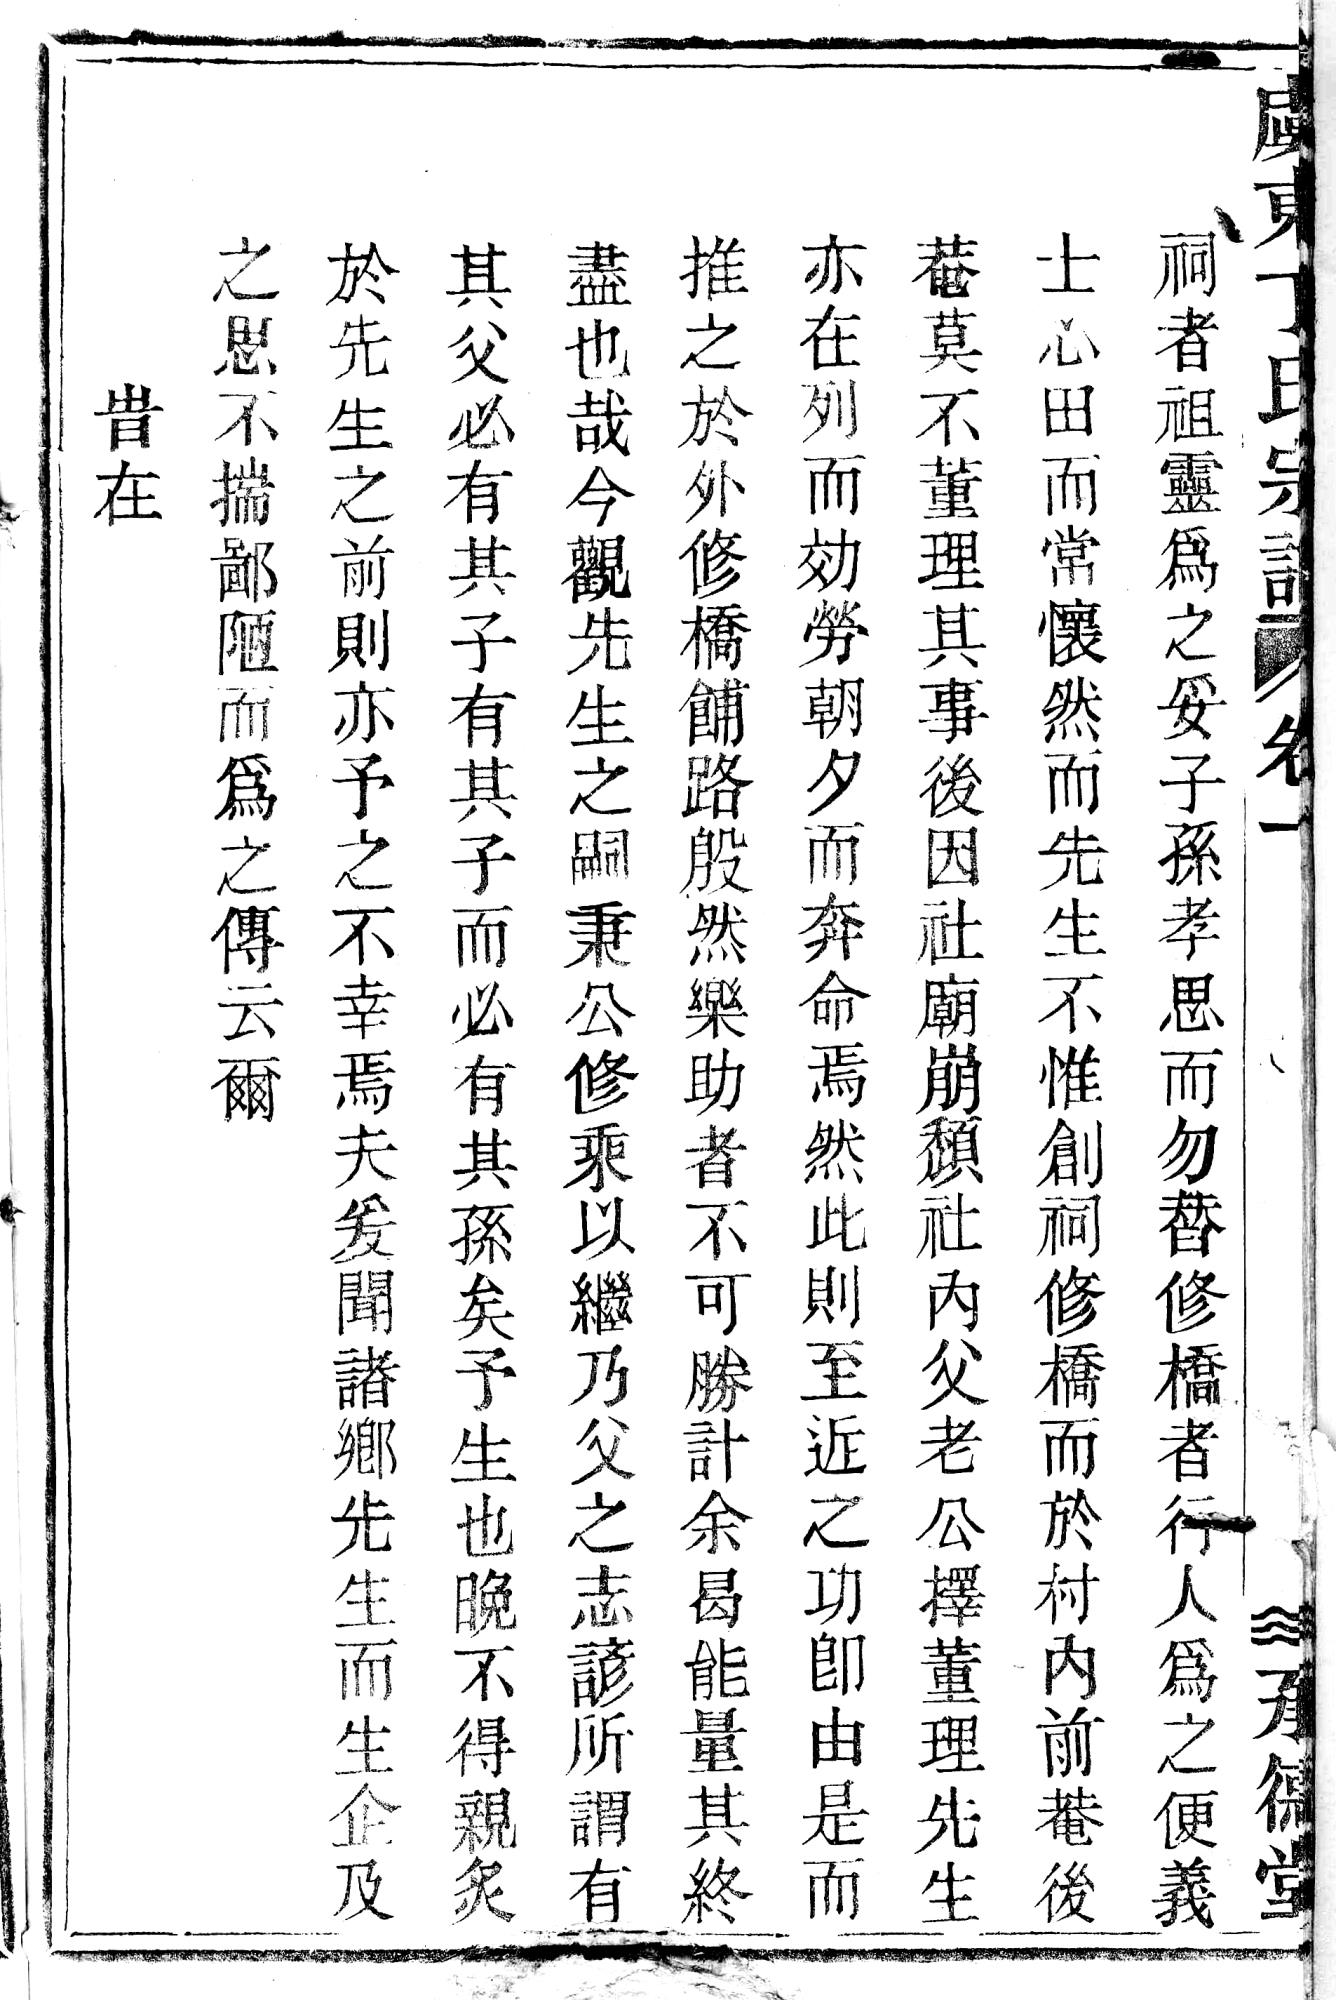 東丁氏宗譜 卷一 承德堂
祠者祖靈爲之妥子孫孝思而勿替修橋者行人爲之便義
士心田而常懷然而先生不惟創祠修橋而於村內前菴後
菴莫不董理其事後因社廟崩頹社內父老公擇董理先生
亦在列而効勞朝夕而奔命焉然此則至近之功卽由是而
推之於外修橋餔路殷然樂助者不可勝計余曷能量其終
盡也哉今觀先生之嗣秉公修乘以繼乃父之志諺所謂有
其父必有其子有其子而必有其孫矣予生也晚不得親炙
於先生之前則亦予之不幸焉夫爰聞諸鄉先生而生企及
之思不揣鄙陋而爲之傳云爾
旹在